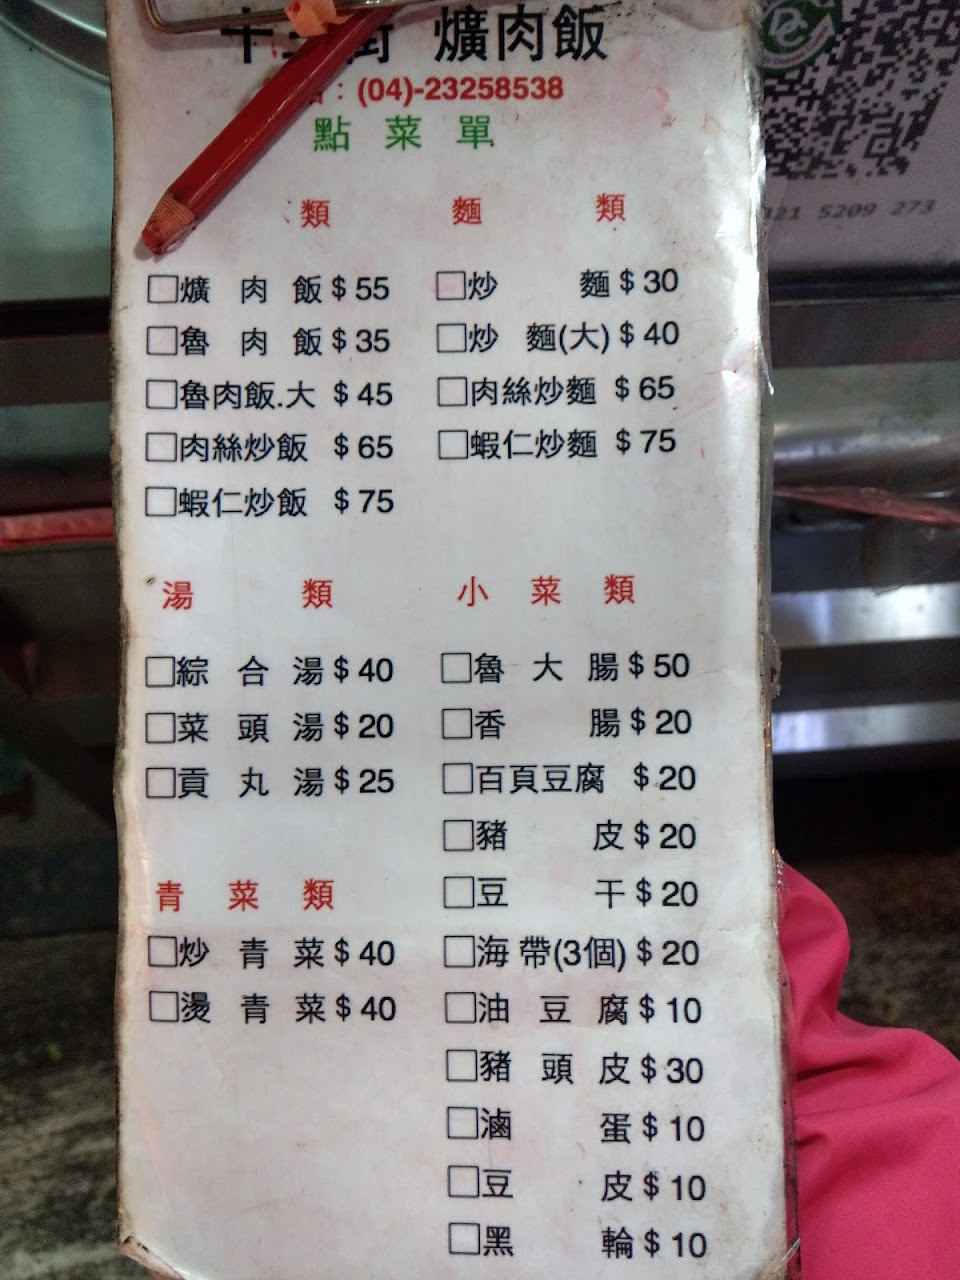 爌肉飯
: (04)-23258538
點菜單
類
□爌肉飯$55
□魯肉飯$35
□魯肉飯.大 $45
□肉絲炒飯 $65
□蝦仁炒飯 $75
麵類
□炒麵$30
□炒麵(大)$40
□肉絲炒麵 $65
□蝦仁炒麵 $75
湯類
□綜合湯$40
□菜頭湯$20
□貢丸湯$25
青菜類
□炒青菜$40
□燙青菜$40
小菜類
□魯大腸$50
□香腸$20
□百頁豆腐 $20
□豬皮$20
□豆干$20
□海帶(3個)$20
□油豆腐$10
□豬頭皮$30
□滷蛋$10
□豆皮$10
□黑輪$10
5209 273